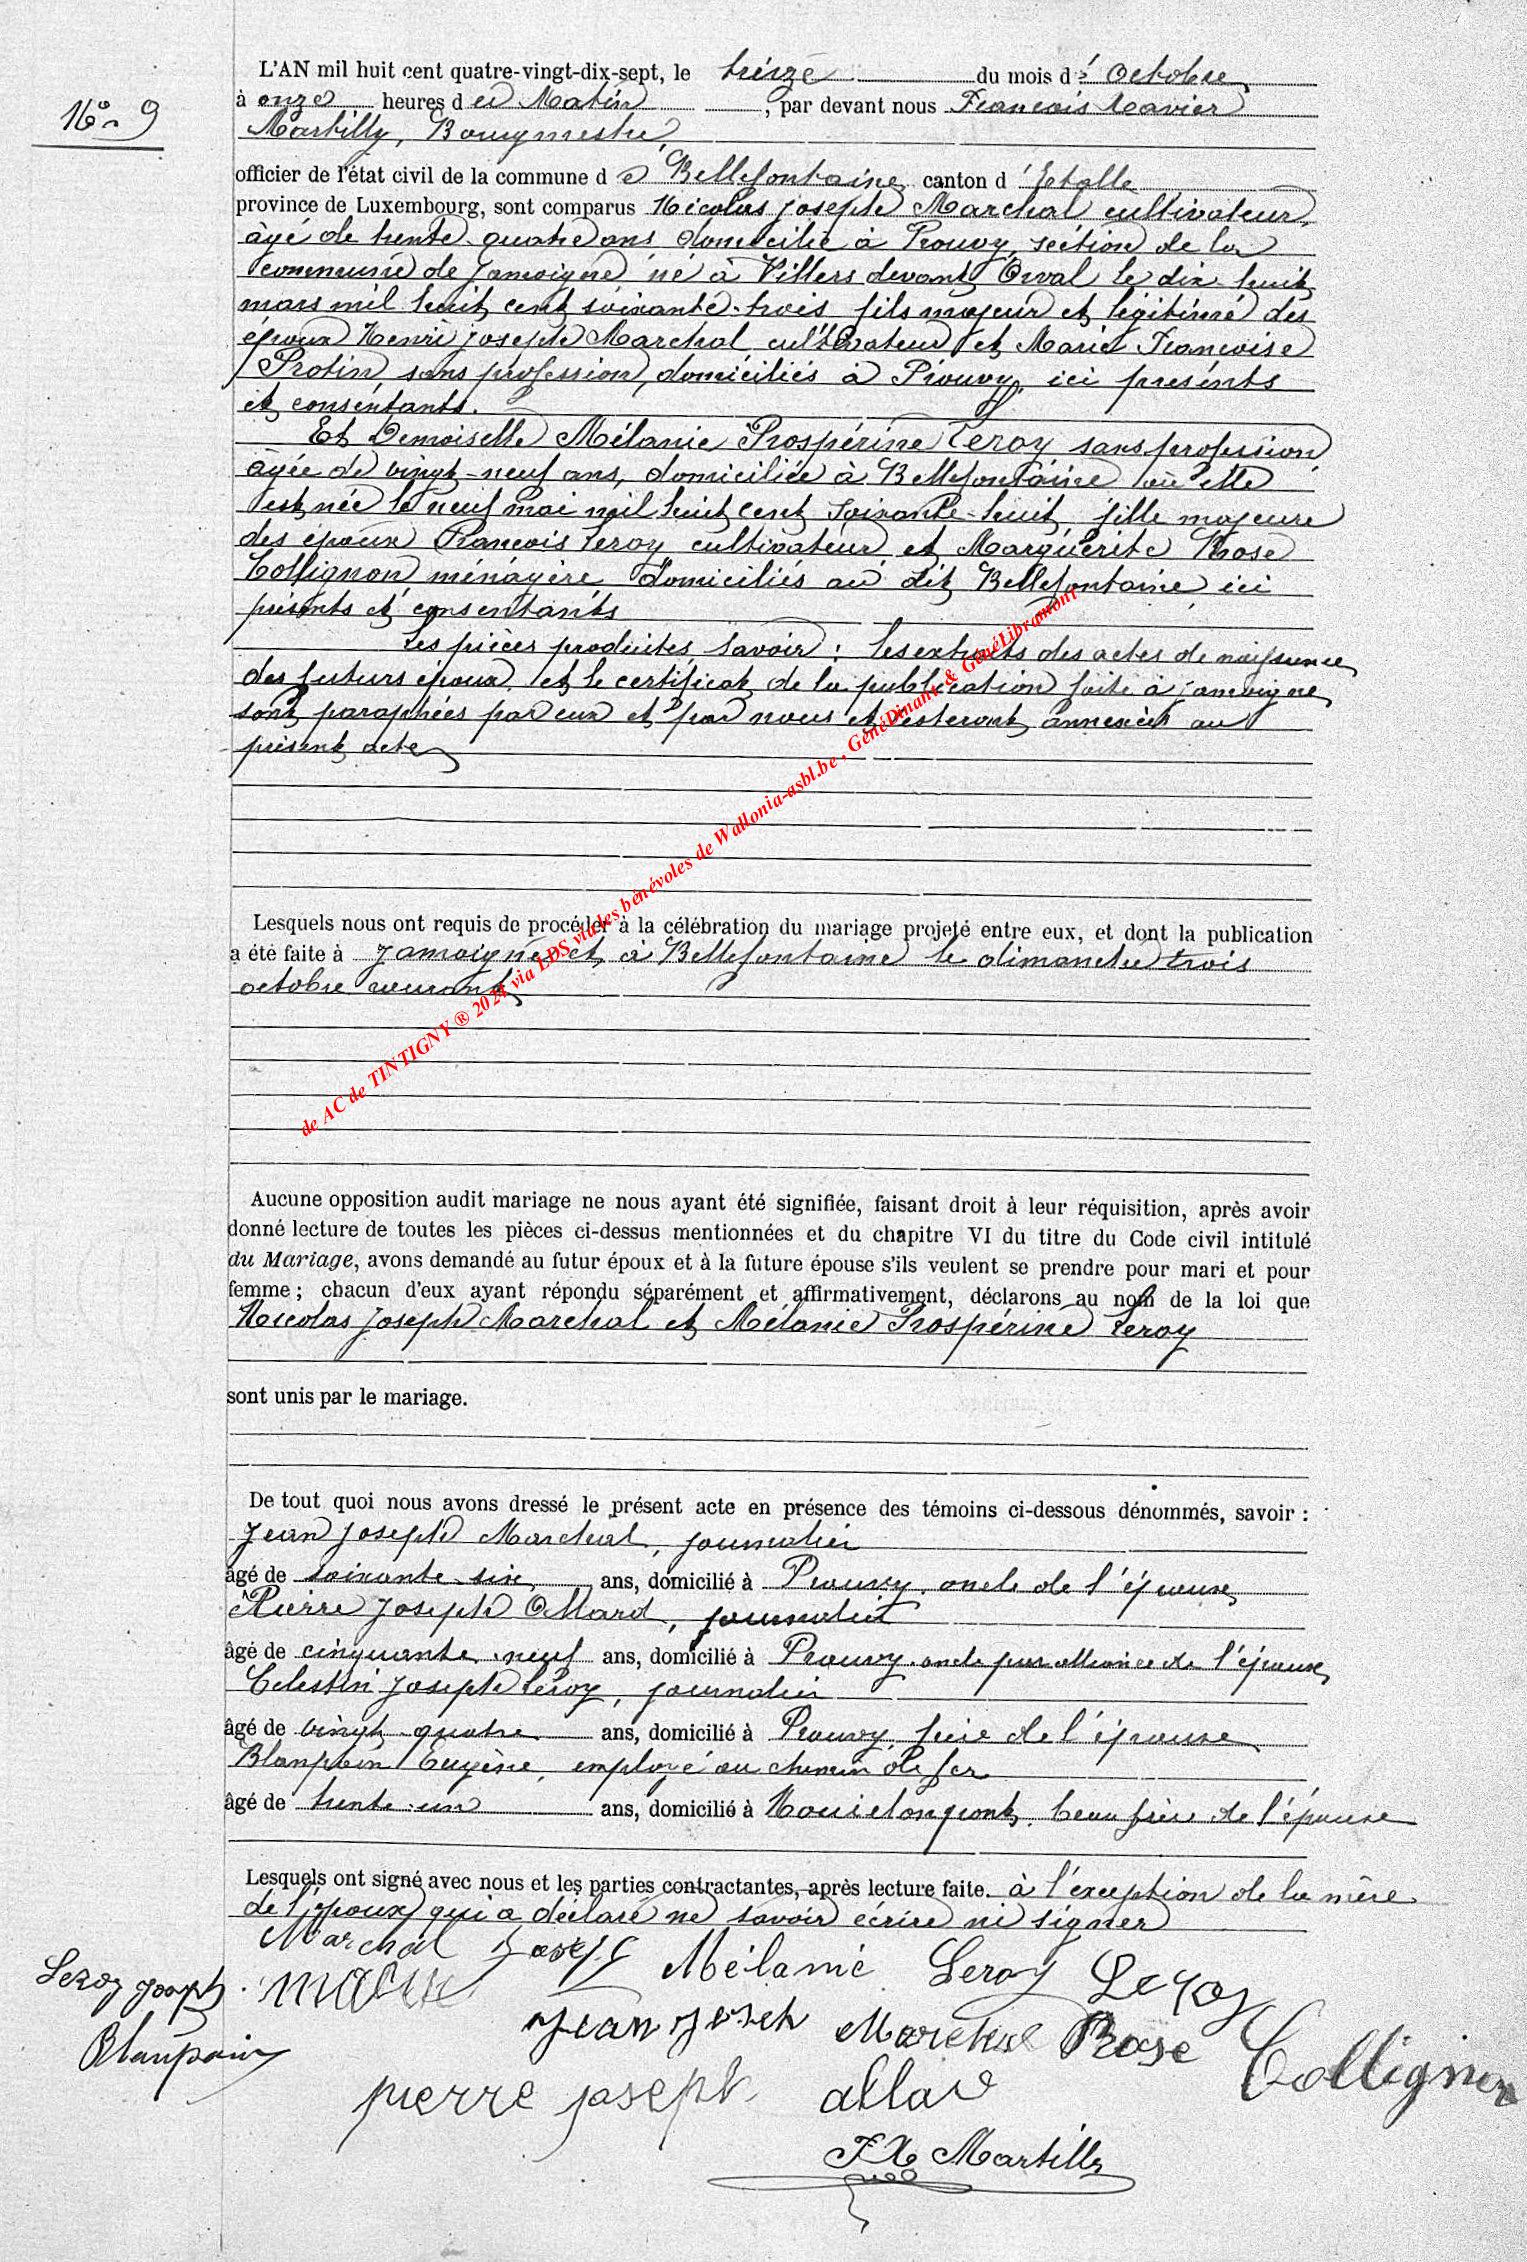 N° 9
L'AN mil huit cent quatre-vingt-dix-sept, le treize du mois d' Octobre
à onze heures du Matin, par devant nous François Xavier
Martilly, Bourgmestre
officier de l'état civil de la commune de Bellefontaine canton d'Etalle
province de Luxembourg, sont comparus Nicolas Joseph Marchal cultivateur
âgé de trente quatre ans domicilié à Prouvy, section de la
commune de Jamoigne né à Villers devant Orval le dix huit
mars mil huit cent soixante-trois fils majeur et légitime des
époux Henri Joseph Marchal cultivateur et Marie Françoise
Protin sans profession, domiciliés à Prouvy, ici présents
et consentants.
Et Demoiselle Mélanie Prospérine Leroy sans profession
âgée de vingt-neuf ans, domiciliée à Bellefontaine où elle
est née le neuf mai mil huit cent soixante-huit, fille majeure
des époux François Leroy cultivateur et Marguerite Rose
Collignon ménagère domiciliés au dit Bellefontaine, ici
présents et consentants
Les pièces produites savoir : les extraits des actes de naissance
des futurs époux et le certificat de la publication faite à Jamoigne
sont paraphées par eux et par nous et resteront annexées au
présent acte
Lesquels nous ont requis de procéder à la célébration du mariage projeté entre eux, et dont la publication
a été faite à Jamoigne et à Bellefontaine le dimanche trois
octobre courant
de AC de TINTIGNY ® 2024 via LDS via les bénévoles de Wallonia-asbl.be , GénéDinant & GénéLibramont
Aucune opposition audit mariage ne nous ayant été signifiée, faisant droit à leur réquisition, après avoir
donné lecture de toutes les pièces ci-dessus mentionnées et du chapitre VI du titre du Code civil intitulé
du Mariage, avons demandé au futur époux et à la future épouse s'ils veulent se prendre pour mari et pour
femme ; chacun d'eux ayant répondu séparément et affirmativement, déclarons au nom de la loi que
Nicolas Joseph Marchal et Mélanie Prospérine Leroy
sont unis par le mariage.
De tout quoi nous avons dressé le présent acte en présence des témoins ci-dessous dénommés, savoir :
Jean Joseph Marchal, journalier
âgé de soixante-six ans, domicilié à Prouvy, oncle de l'épouse
Pierre Joseph Allard, journalier
âgé de cinquante-neuf ans, domicilié à Prouvy, oncle par alliance de l'épouse
Célestin Joseph Leroy, journalier
âgé de vingt quatre ans, domicilié à Prouvy, frère de l'épouse
Blanpain Eugène, employé au chemin de fer
âgé de trente-un ans, domicilié à beau frère de l'épouse
Lesquels ont signé avec nous et les parties contractantes, après lecture faite. à l'exception de la mère
de l'époux qui a déclaré ne savoir écrire ni signer
Marchal Joseph Mélanie Leroy Leroy
Leroy Joseph
Jean Joseph Marchal Rose Collignon
Blanpain
pierre joseph allard
FX Martilly